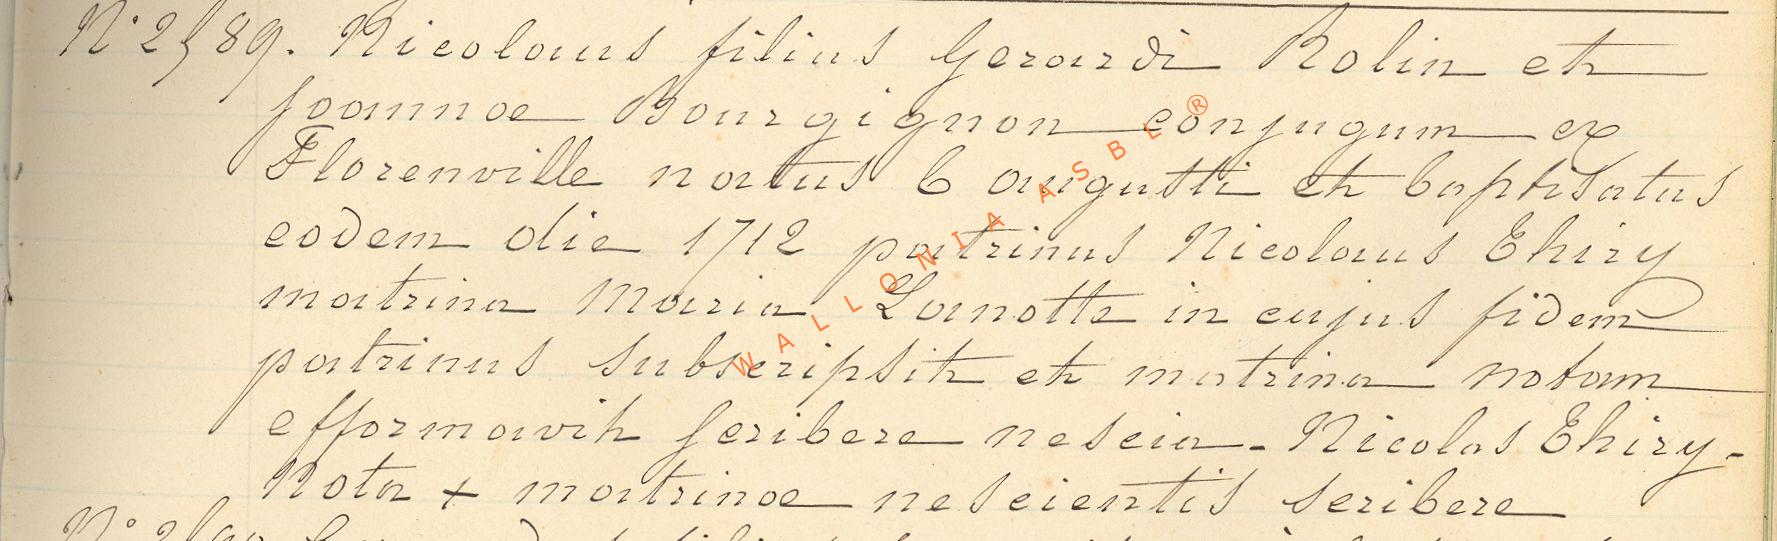 N° 2589. Nicolaus filius Gerardi Rolin et
Joannoe Bourgignon conjugum ex
Florenville natus 6 augusti et baptisatus
eodem die 1712 patrinus Nicolaus Ehiry
matrina Maria Lamotte in cujus fidem
patrinus subscripsit et matrina notam
efformavit scribere nescia - Nicolas Ehiry -
Nota + matrinoe nescientis scribere
WALLONIA ASBL ®